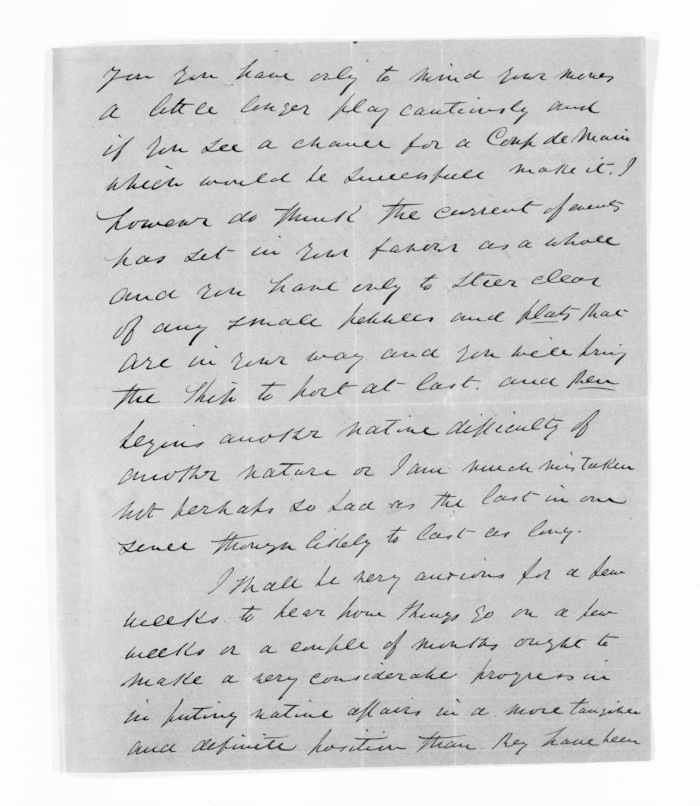 you you have only to mind your moves
a little longer play cautiously and
if you see a chance for a Coup de Main
which would be successfull make it. I
however do think the current of events
has set in your favour as a whole
and you have only to steer clear
of any small pebbles and plats that
are in your way and you will bring
the Ship to port at last. and then
begins another native difficulty of
another nature or I am much mistaken
not perhaps so bad as the last in one
sence though likely to last as long.
I shall be very anxious for a few
weeks to hear how things go on a few
weeks or a couple of months ought to
make a very considerable progress in
in puting native affairs in a more tangible
and definite position than they have been